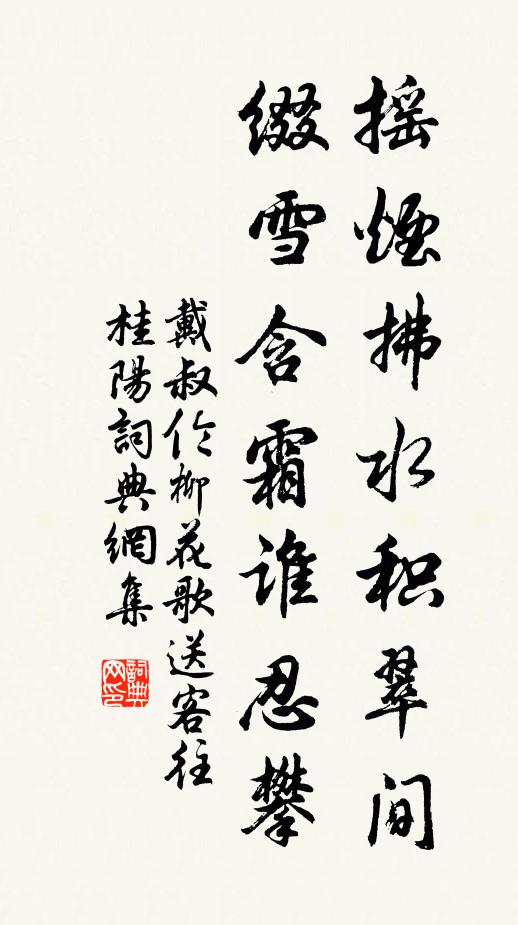 摇烟拂水积翠间
缀雪含霜谁忍攀
戴叔伦柳花歌送客往
桂陽詞典網集
詞典网印